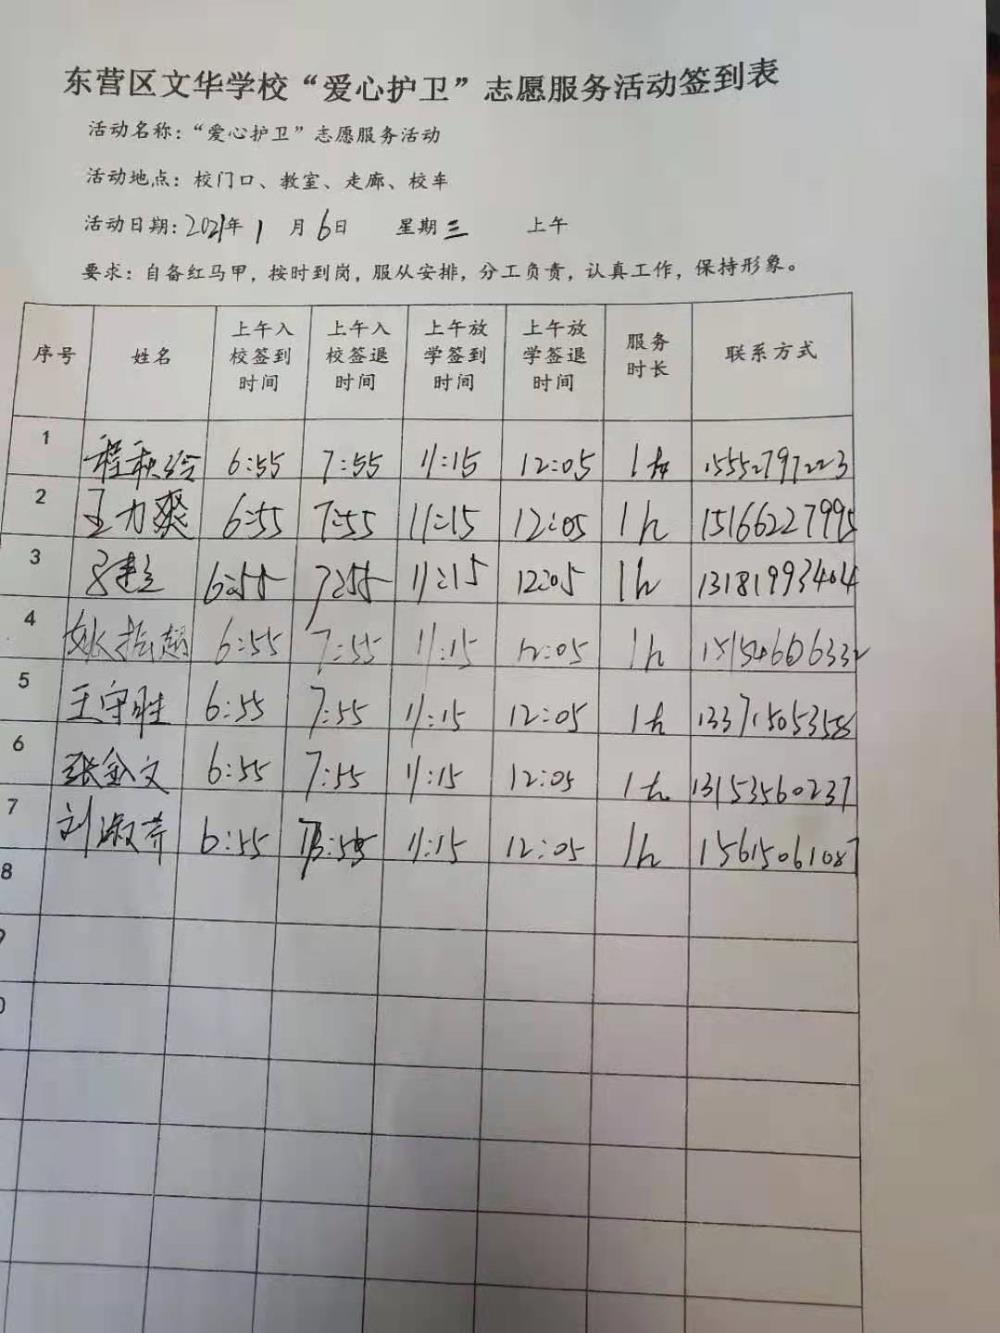 东营区文华学校“爱心护卫”志愿服务活动签到表
活动名称：“爱心护卫”志愿服务活动
活动地点：校门口、教室、走廊、校车
活动日期：2021年 1 月 6日 星期三 上午
要求：自备红马甲，按时到岗，服从安排，分工负责，认真工作，保持形象。
序号 姓名 上午入校签到时间 上午入校签退时间 上午放学签到时间 上午放学签退时间 服务时长 联系方式
1 程秋玲 6:55 7:55 11:15 12:05 1h 15552797223
2 王力爽 6:55 7:55 11:15 12:05 1h 15166227995
3 6:55 7:55 11:15 12:05 1h 13181993404
4 姚振超 6:55 7:55 11:15 12:05 1h 15154606332
5 王守胜 6:55 7:55 11:15 12:05 1h 13371505358
6 张金文 6:55 7:55 11:15 12:05 1h 13153560237
7 刘淑芹 6:55 7:55 11:15 12:05 1h 15615061087
8